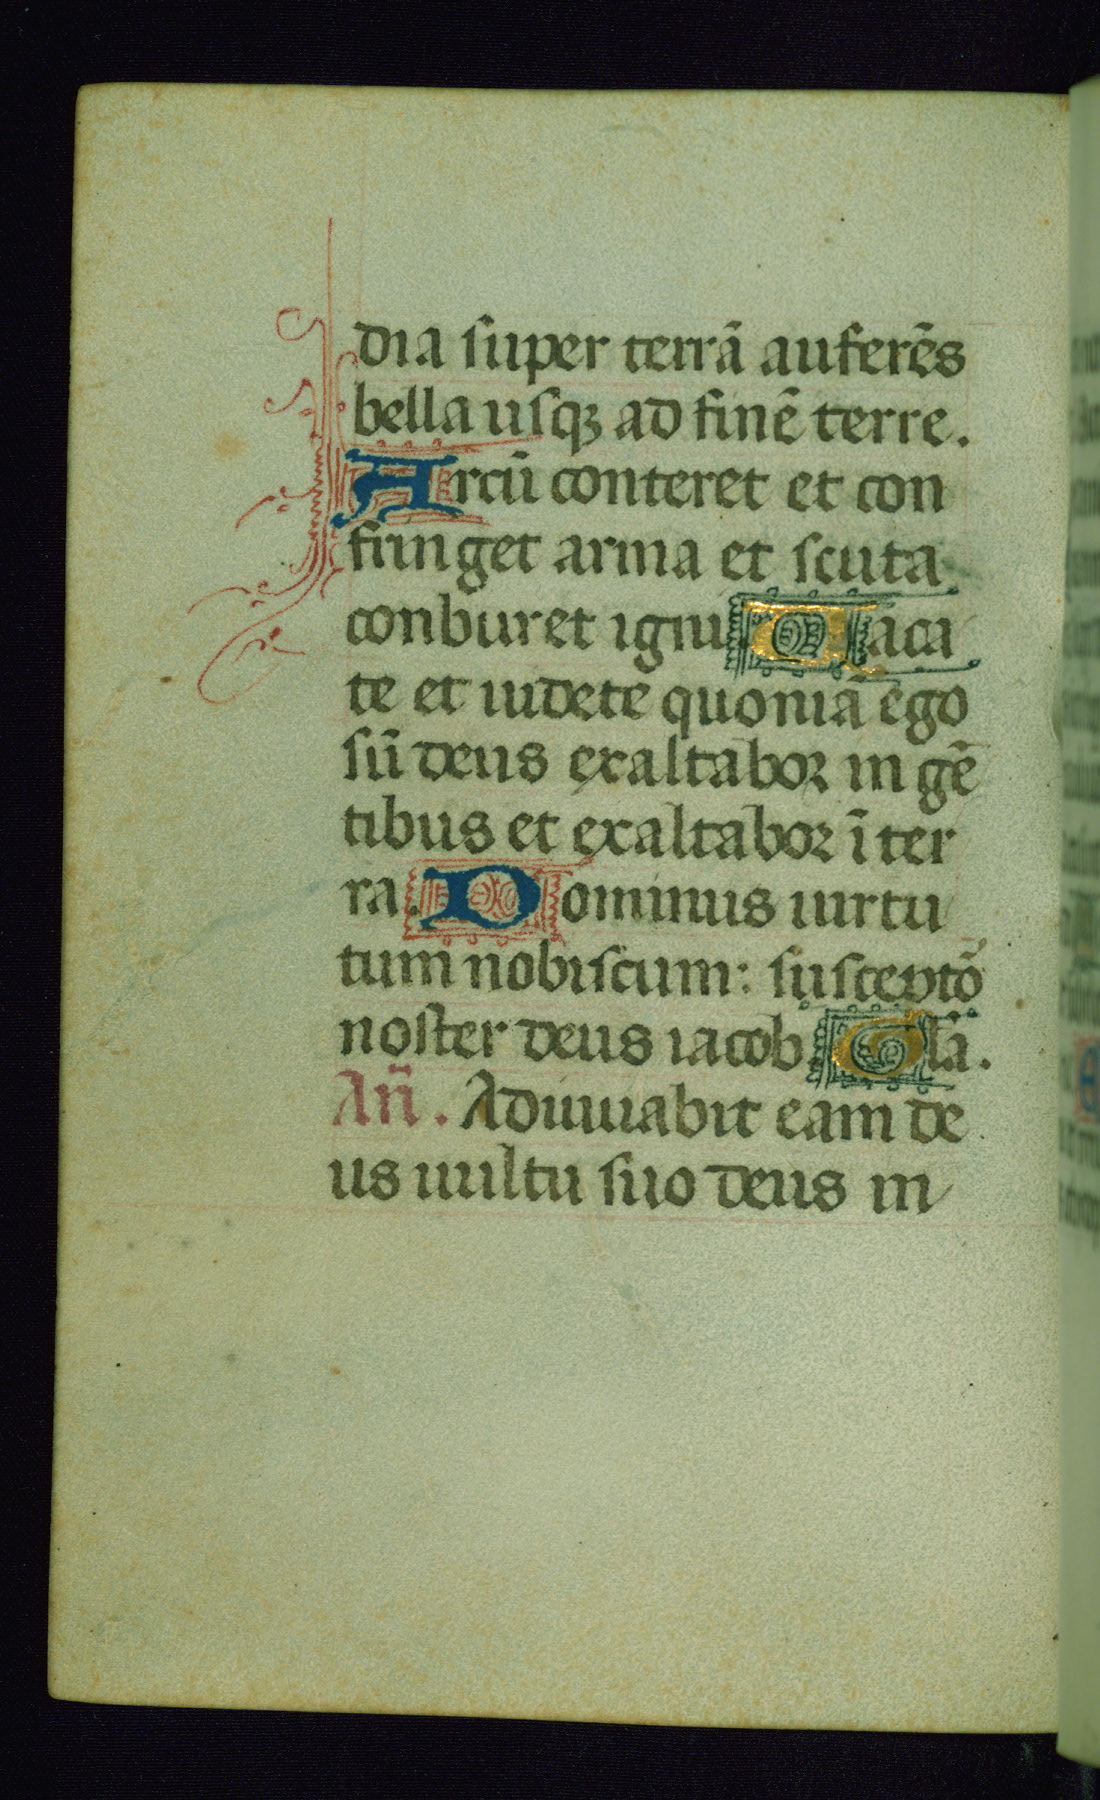 dia super terrā auferēs
bella usqꝫ ad finē terre.
Arcū conteret et con
fringet arma et scuta
conburet igni. Uaca
te et uidete quoniā ego
sū deus exaltabor in gē
tibus et exaltabor ī ter
ra. Dominus uirtu
tum nobiscum: susceptō
noster deus iacob. Glā.
Añ. Adiuuabit eam de
us uultu suo deus in